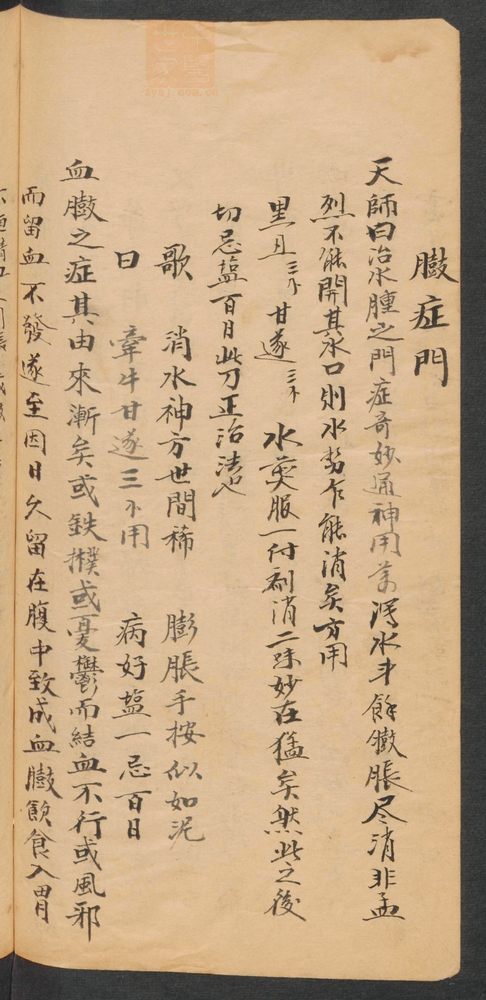 臌症門
天師曰治水腫之門症奇妙通神用药浮水斗餘臌脹尽消非孟
烈不能開其水口則水势乍能消矣方用
黑丑三个甘遂三个 水煎服一付剷消二珠妙在猛矣然此之後
切忌盐百日此乃正治法也
歌 消水神方世間稀 膨脹手按似如泥
曰 牽牛甘遂三个用 病好盐一忌百日
血臌之症其由來漸矣或鉄撲或憂鬱而結血不行或風邪
而留血不發遂至因日久留在腹中致成血臌飲食入胃